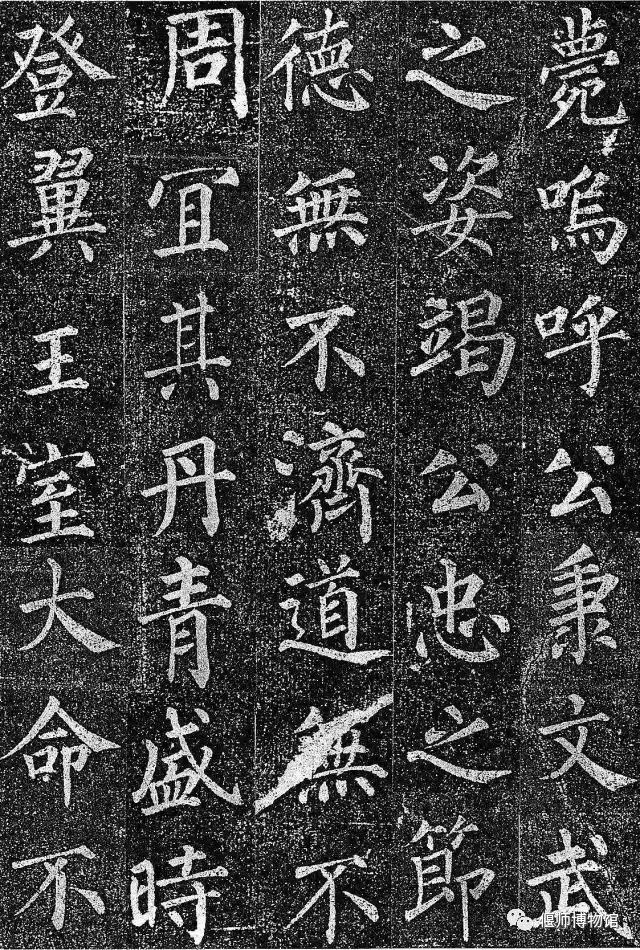 薨嗚呼公秉文武
之姿竭公忠之節
德無不濟道無不
周宜其丹青盛時
登翼王室大命不
偃师博物馆